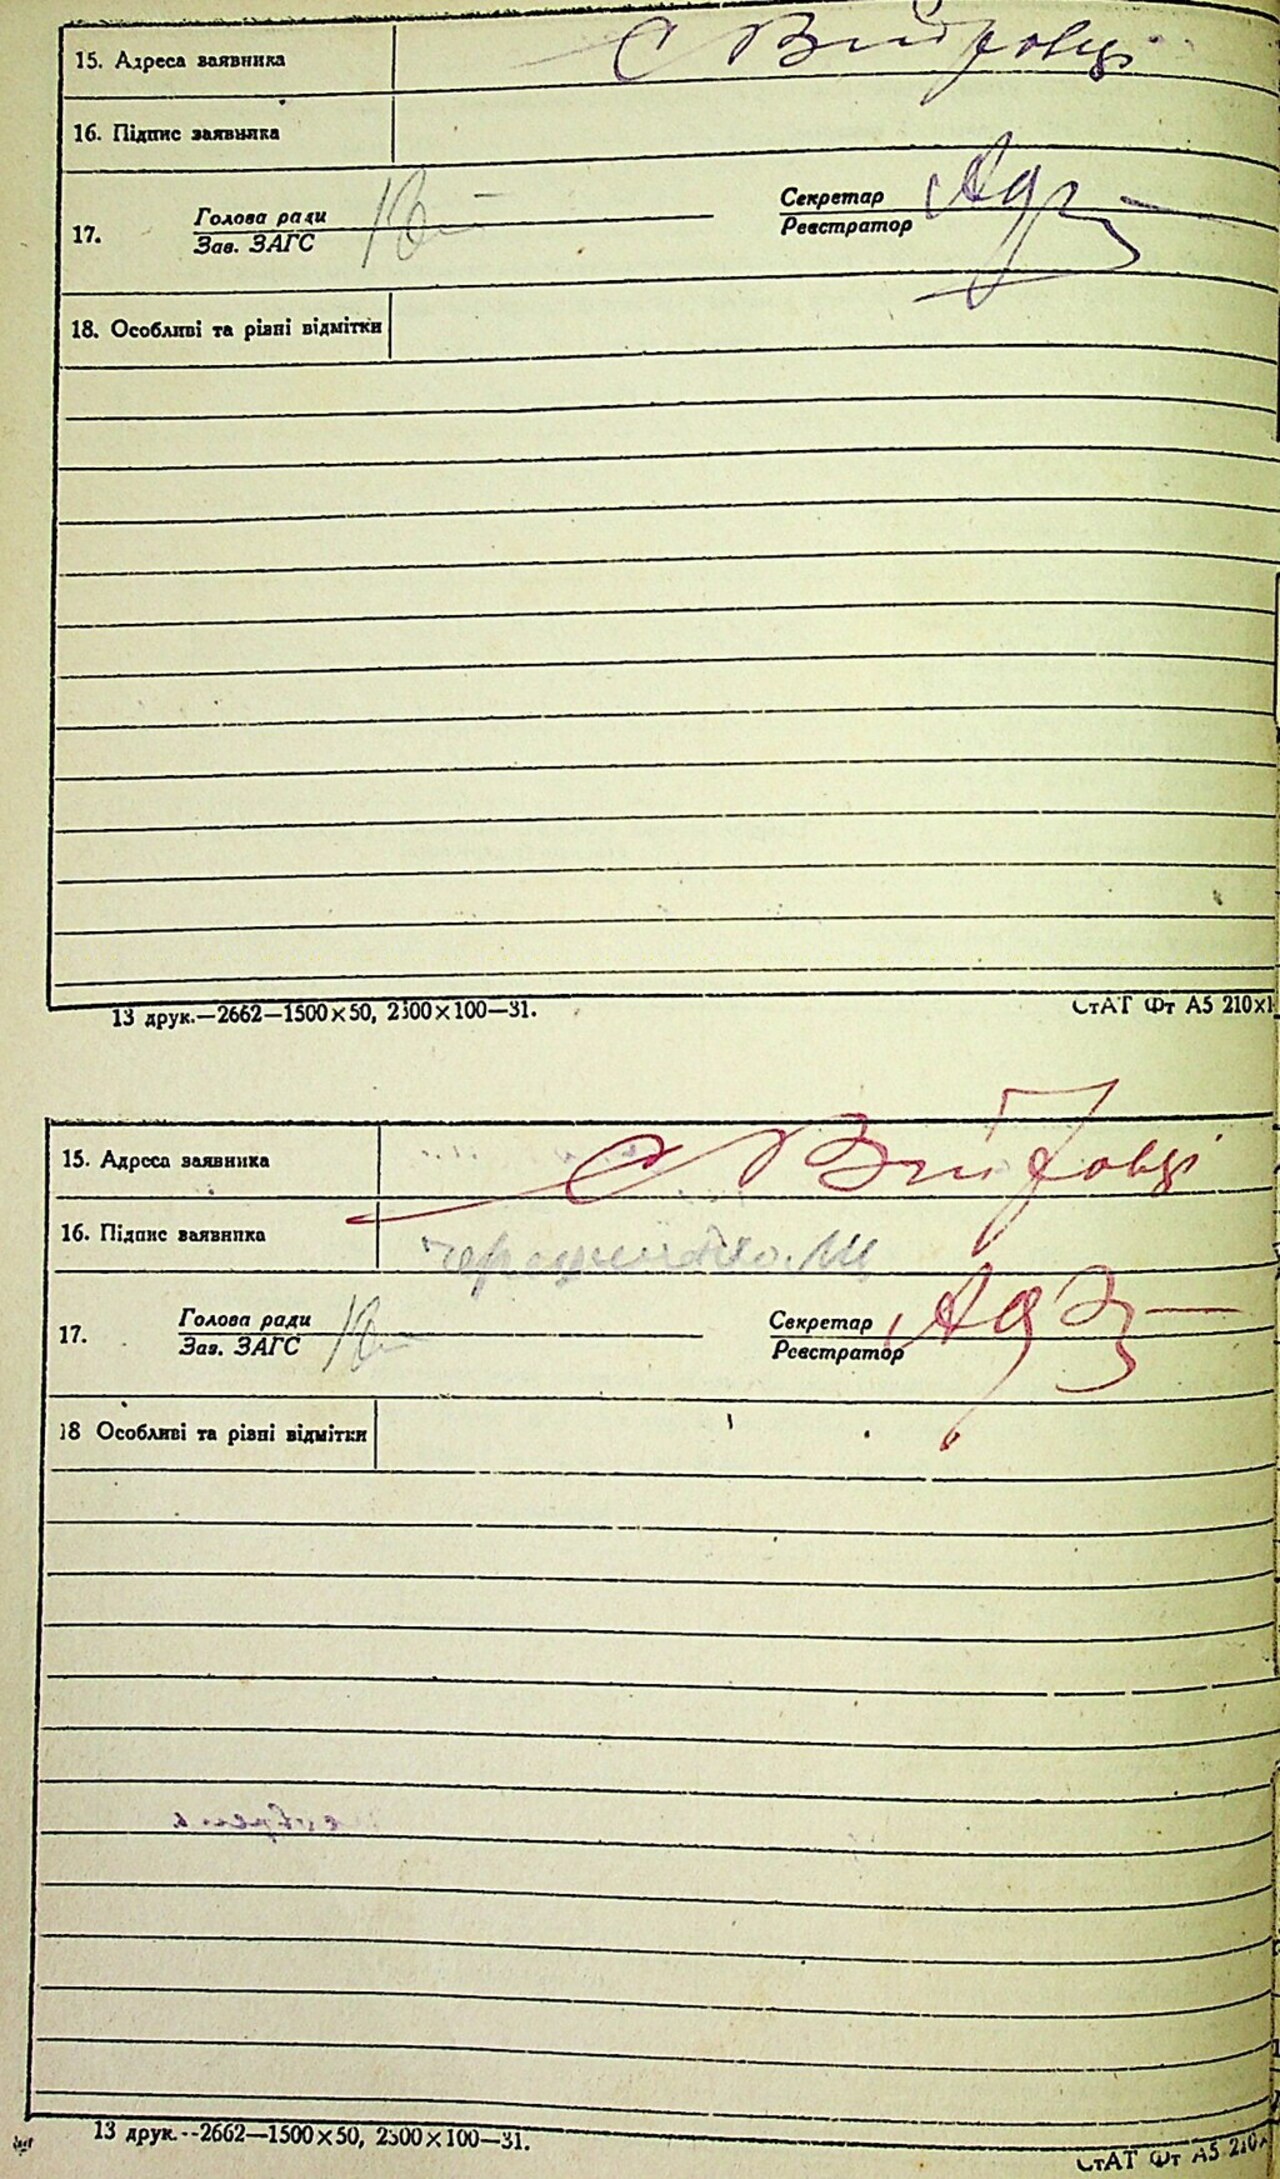 15. Адреса заявника С Війтовці
16. Підпис заявника
17. Голова ради Секретар
Зав. ЗАГС Реєстратор
18. Особливі та різні відмітки
13 друк.—2662—1500×50, 2500×100—31. СтАТ Фт А5 210×1
15. Адреса заявника С Війтовці
16. Підпис заявника
17. Голова ради Секретар
Зав. ЗАГС Реєстратор
18 Особливі та різні відмітки
13 друк.--2662—1500×50, 2500×100—31. СтАТ Фт А5 210×